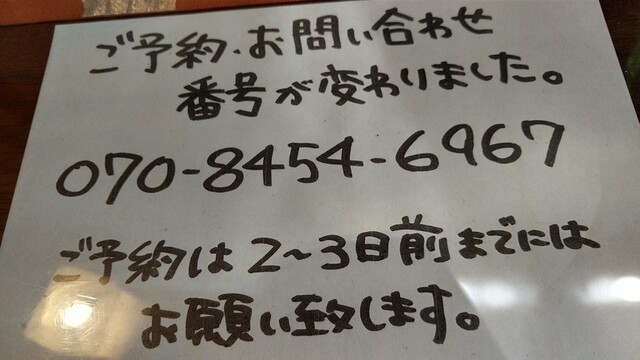 ご予約・お問い合わせ
番号が変わりました。
070-8454-6967
ご予約は2～3日前までには
お願い致します。